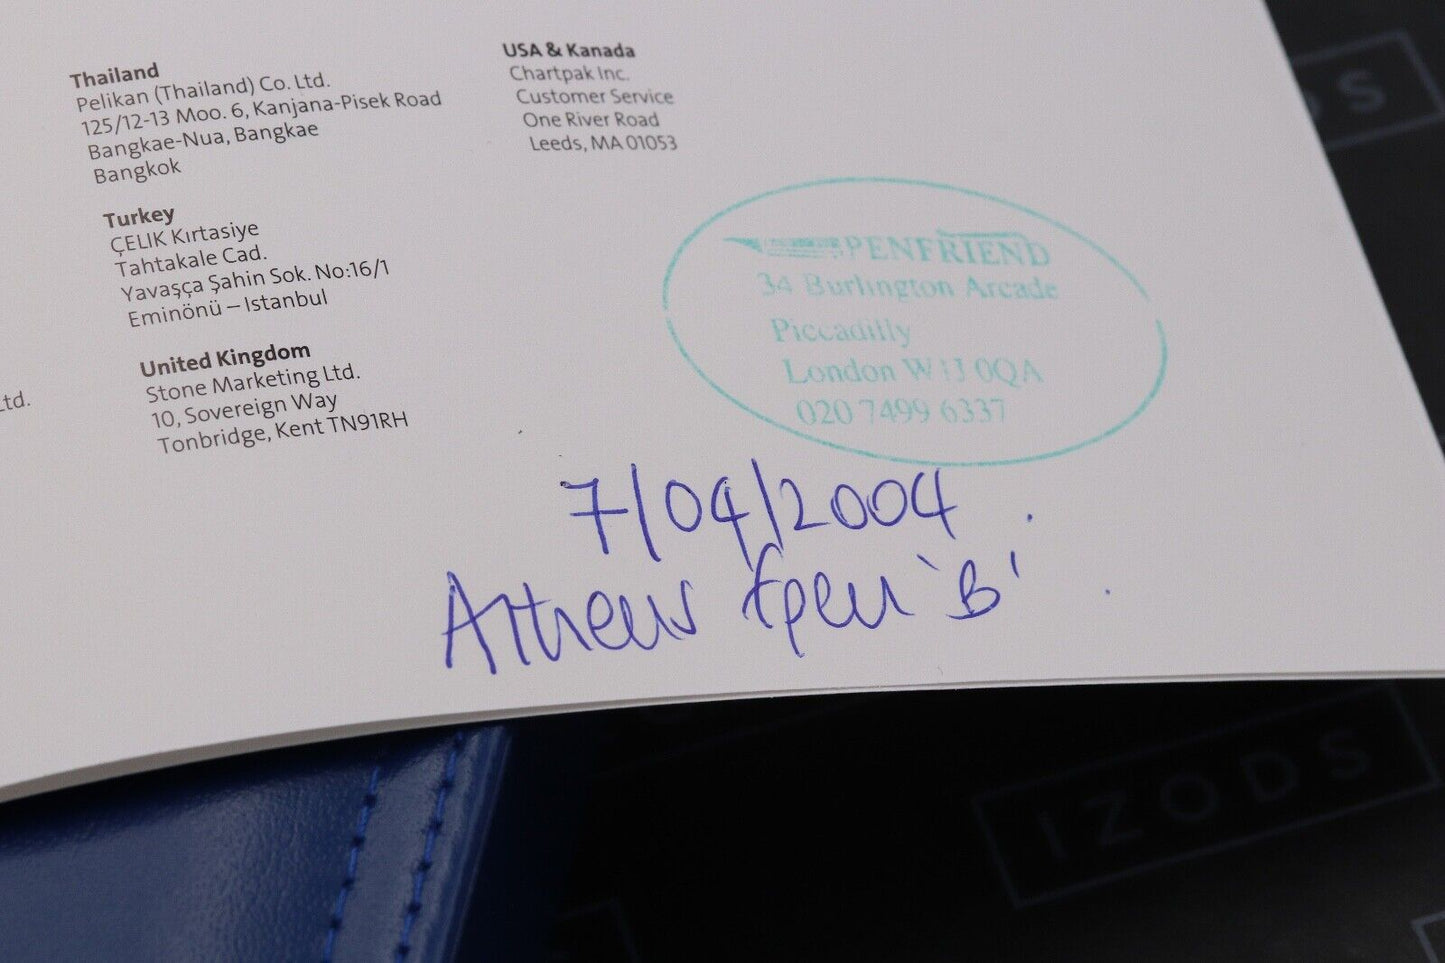 Thailand
Pelikan (Thailand) Co. Ltd.
125/12-13 Moo. 6, Kanjana-Pisek Road
Bangkae-Nua, Bangkae
Bangkok
Turkey
ÇELIK Kırtasiye
Tahtakale Cad.
Yavaşça Şahin Sok. No:16/1
Eminönü – Istanbul
United Kingdom
Stone Marketing Ltd.
10, Sovereign Way
Tonbridge, Kent TN91RH
Ltd.
USA & Kanada
Chartpak Inc.
Customer Service
One River Road
Leeds, MA 01053
PENFRIEND
34 Burlington Arcade
Piccadilly
London W1J 0QA
020 7499 6337
7/04/2004
Athens 'B'
IZODS